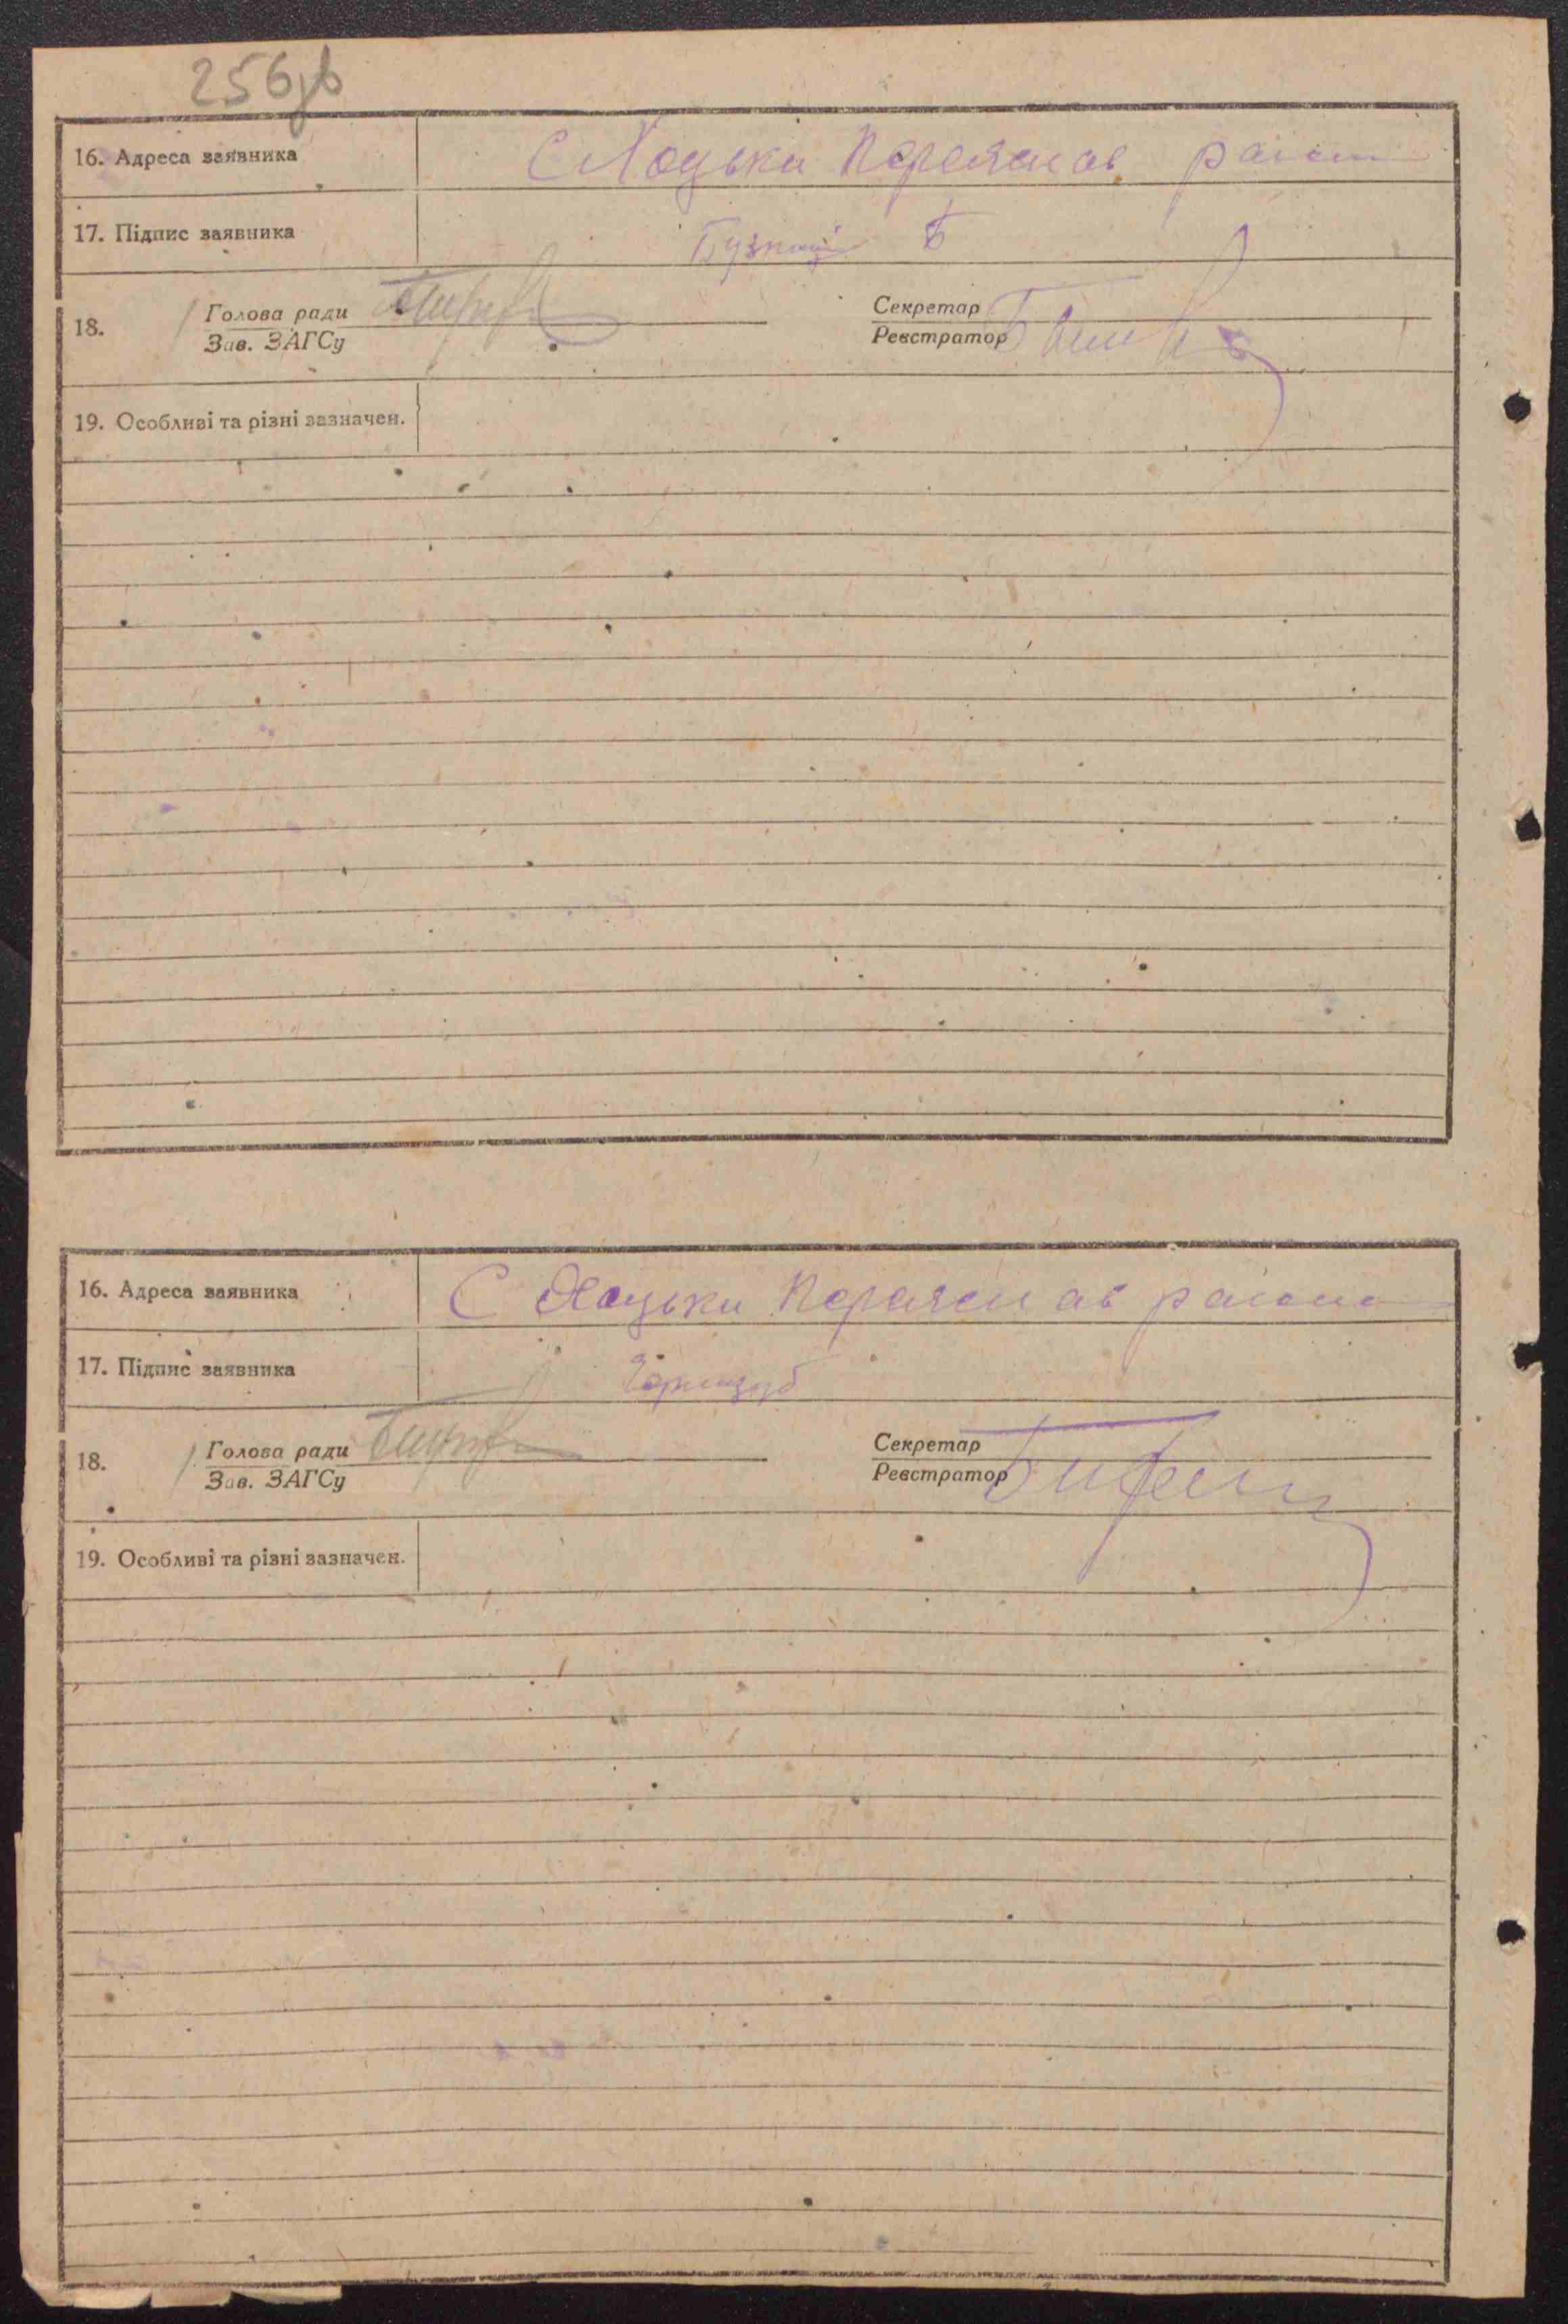 256зв
16. Адреса заявника С Хоцьки Переяслав район
17. Підпис заявника Б
18. Голова ради Секретар
Зав. ЗАГСу Реєстратор
19. Особливі та різні зазначен.
16. Адреса заявника С Хоцьки Переяслав район
17. Підпис заявника
18. Голова ради Секретар
Зав. ЗАГСу Реєстратор
19. Особливі та різні зазначен.